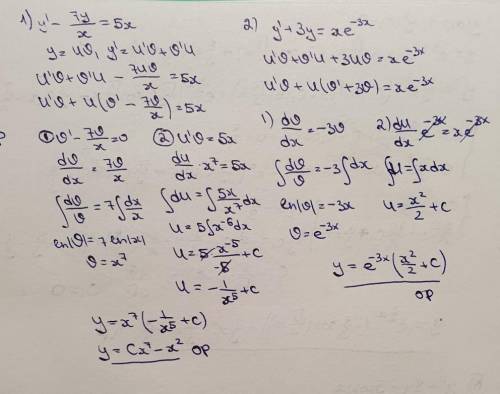 1) y' - 7y/x = 5x
y = uϑ, y' = u'ϑ + ϑ'u
u'ϑ + ϑ'u - 7uϑ/x = 5x
u'ϑ + u(ϑ' - 7ϑ/x) = 5x
① ϑ' - 7ϑ/x = 0
dϑ/dx = 7ϑ/x
∫dϑ/ϑ = 7∫dx/x
ln|ϑ| = 7 ln|x|
ϑ = x⁷
② u'ϑ = 5x
du/dx · x⁷ = 5x
∫du = ∫5x/x⁷ dx
u = 5∫x⁻⁶dx
u = 5 · x⁻⁵/-5 + c
u = -1/x⁵ + c
y = x⁷(-1/x⁵ + c)
y = Cx⁷ - x² ОР
2) y' + 3y = xe⁻³ˣ
u'ϑ + ϑ'u + 3uϑ = xe⁻³ˣ
u'ϑ + u(ϑ' + 3ϑ) = xe⁻³ˣ
1) dϑ/dx = -3ϑ
∫dϑ/ϑ = -3∫dx
ln|ϑ| = -3x
ϑ = e⁻³ˣ
2) du/dx e⁻³ˣ = xe⁻³ˣ
∫du = ∫xdx
u = x²/2 + c
y = e⁻³ˣ(x²/2 + c)
ОР